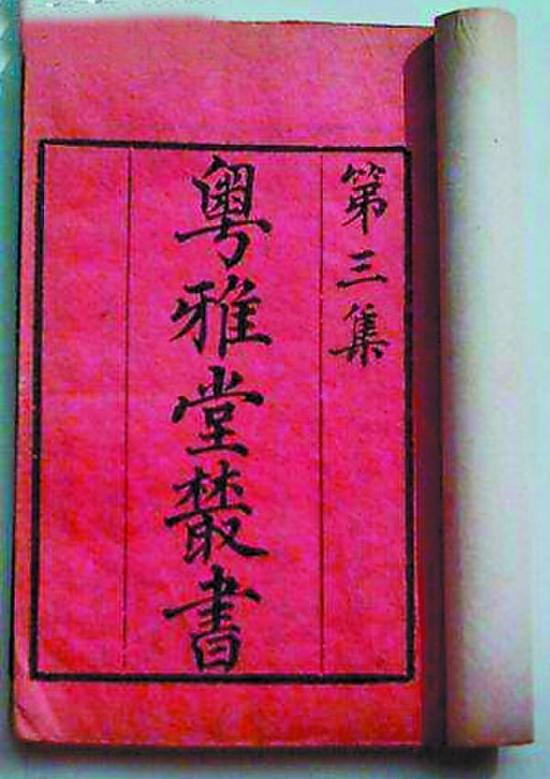 第三集
粤雅堂叢書